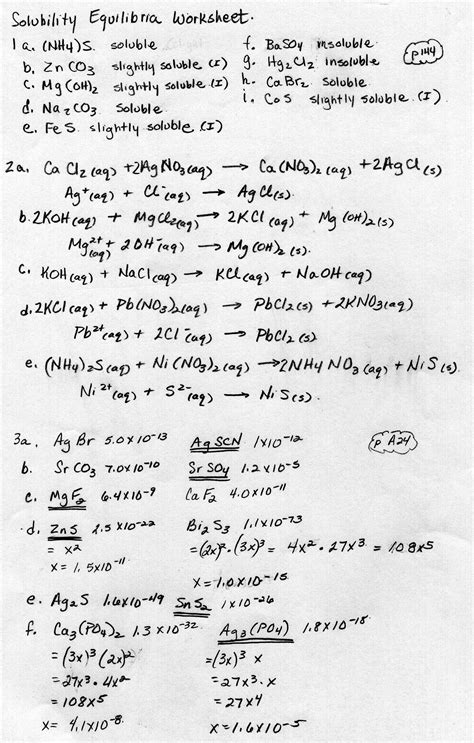 Solubility Equilibria Worksheet.
1 a. (NH4)S. soluble
f. BaSO4 insoluble
p 144
b. ZnCO3 slightly soluble (I)
g. Hg2Cl2 insoluble
c. Mg(OH)2 slightly soluble (I)
h. CaBr2 soluble
d. Na2CO3 soluble
i. CoS slightly soluble (I)
e. FeS slightly soluble (I)
2a. CaCl2 (aq) + 2AgNO3 (aq) → Ca(NO3)2 (aq) + 2AgCl (s)
Ag+ (aq) + Cl- (aq) → AgCl (s).
b. 2KOH (aq) + MgCl2 (aq) → 2KCl (aq) + Mg(OH)2 (s)
Mg2+ (aq) + 2OH- (aq) → Mg(OH)2 (s).
c. KOH (aq) + NaCl (aq) → KCl (aq) + NaOH (aq)
d. 2KCl (aq) + Pb(NO3)2 (aq) → PbCl2 (s) + 2KNO3 (aq)
Pb2+ (aq) + 2Cl- (aq) → PbCl2 (s)
e. (NH4)2S (aq) + Ni(NO3)2 (aq) → 2NH4NO3 (aq) + NiS (s).
Ni2+ (aq) + S2- (aq) → NiS (s).
3a. AgBr 5.0x10-13 AgSCN 1x10-12
p A24
b. SrCO3 7.0x10-10 SrSO4 1.2x10-5
c. MgF2 6.4x10-9 CaF2 4.0x10-11
d. ZnS 2.5x10-22 Bi2S3 1.1x10-73
= x2 =(2x)2 · (3x)3 = 4x2 · 27x3 = 108x5
x= 1.5x10-11
x=1.0x10-15
e. Ag2S 1.6x10-49 SnS2 1x10-26
f. Ca3(PO4)2 1.3x10-32 Ag3(PO4) 1.8x10-18
= (3x)3 (2x)2 =(3x)3 x
=27x3 · 4x2 =27x3 · x
=108x5 =27x4
x= 4.1x10-8 x=1.6x10-5